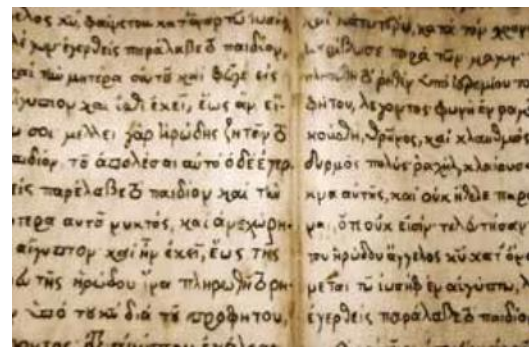 ελος κυ, φαίνεται κατ όναρ τῶ ἰωσὴφ
ἐγερθεὶς παράλαβε τὸ παιδίον,
καὶ τὴν μητέρα αὐτοῦ καὶ φεῦγε εἰς
αἴγυπτον καὶ ἴσθι ἐκεῖ, ἕως ἂν εἴ
σοι μέλλει γὰρ ἡρώδης ζητεῖν τὸ
αιδίον τὸ ἀπολέσαι αὐτό ὁ δὲ ἐγερ
εὶς παρέλαβε τὸ παιδίον καὶ τὴν
τέρα αὐτοῦ νυκτός, καὶ ἀνεχώρη
αἴγυπτον καὶ ἦν ἐκεῖ, ἕως τῆς
τῆς ἡρώδου ἵνα πληρωθῆ τὸ ρη
ὑπὸ τοῦ κυ διὰ τοῦ προφήτου,
καὶ κατωτέρω, κατὰ τὸν χρον
ἠκρίβωσε παρὰ τῶν μάγων
τὸ ρηθὲν ὑπὸ ἱερεμίου το
φήτου, λέγοντος φωνὴ ἐν ραμ
κούσθη, θρῆνος, καὶ κλαυθμὸς
δυρμὸς πολύς ραχὴλ κλαίουσ
κνα αὐτῆς, καὶ οὐκ ἤθελε παρ
ὅτι οὐκ εἰσίν τελευτήσαν
του ἡρώδου ἄγγελος κυ κατ όνα
νεται τῶ ἰωσὴφ ἐν αἰγύπτω, λ
ἐγερθεὶς παράλαβε τὸ παιδίο